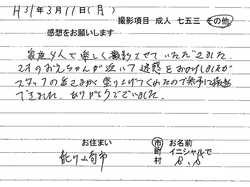 H31年3月11日(月)
撮影項目 成人 七五三 その他
感想をお願いします
家族4人で楽しく撮影させていただきました。
2才のお兄ちゃんが泣いて迷惑をおかけしましたが
スタッフの皆さまが盛り上げてくれたので無事に撮影
できました。ありがとうございました。
お住まい
龍ヶ崎市
市
町
村
お名前
イニシャルで